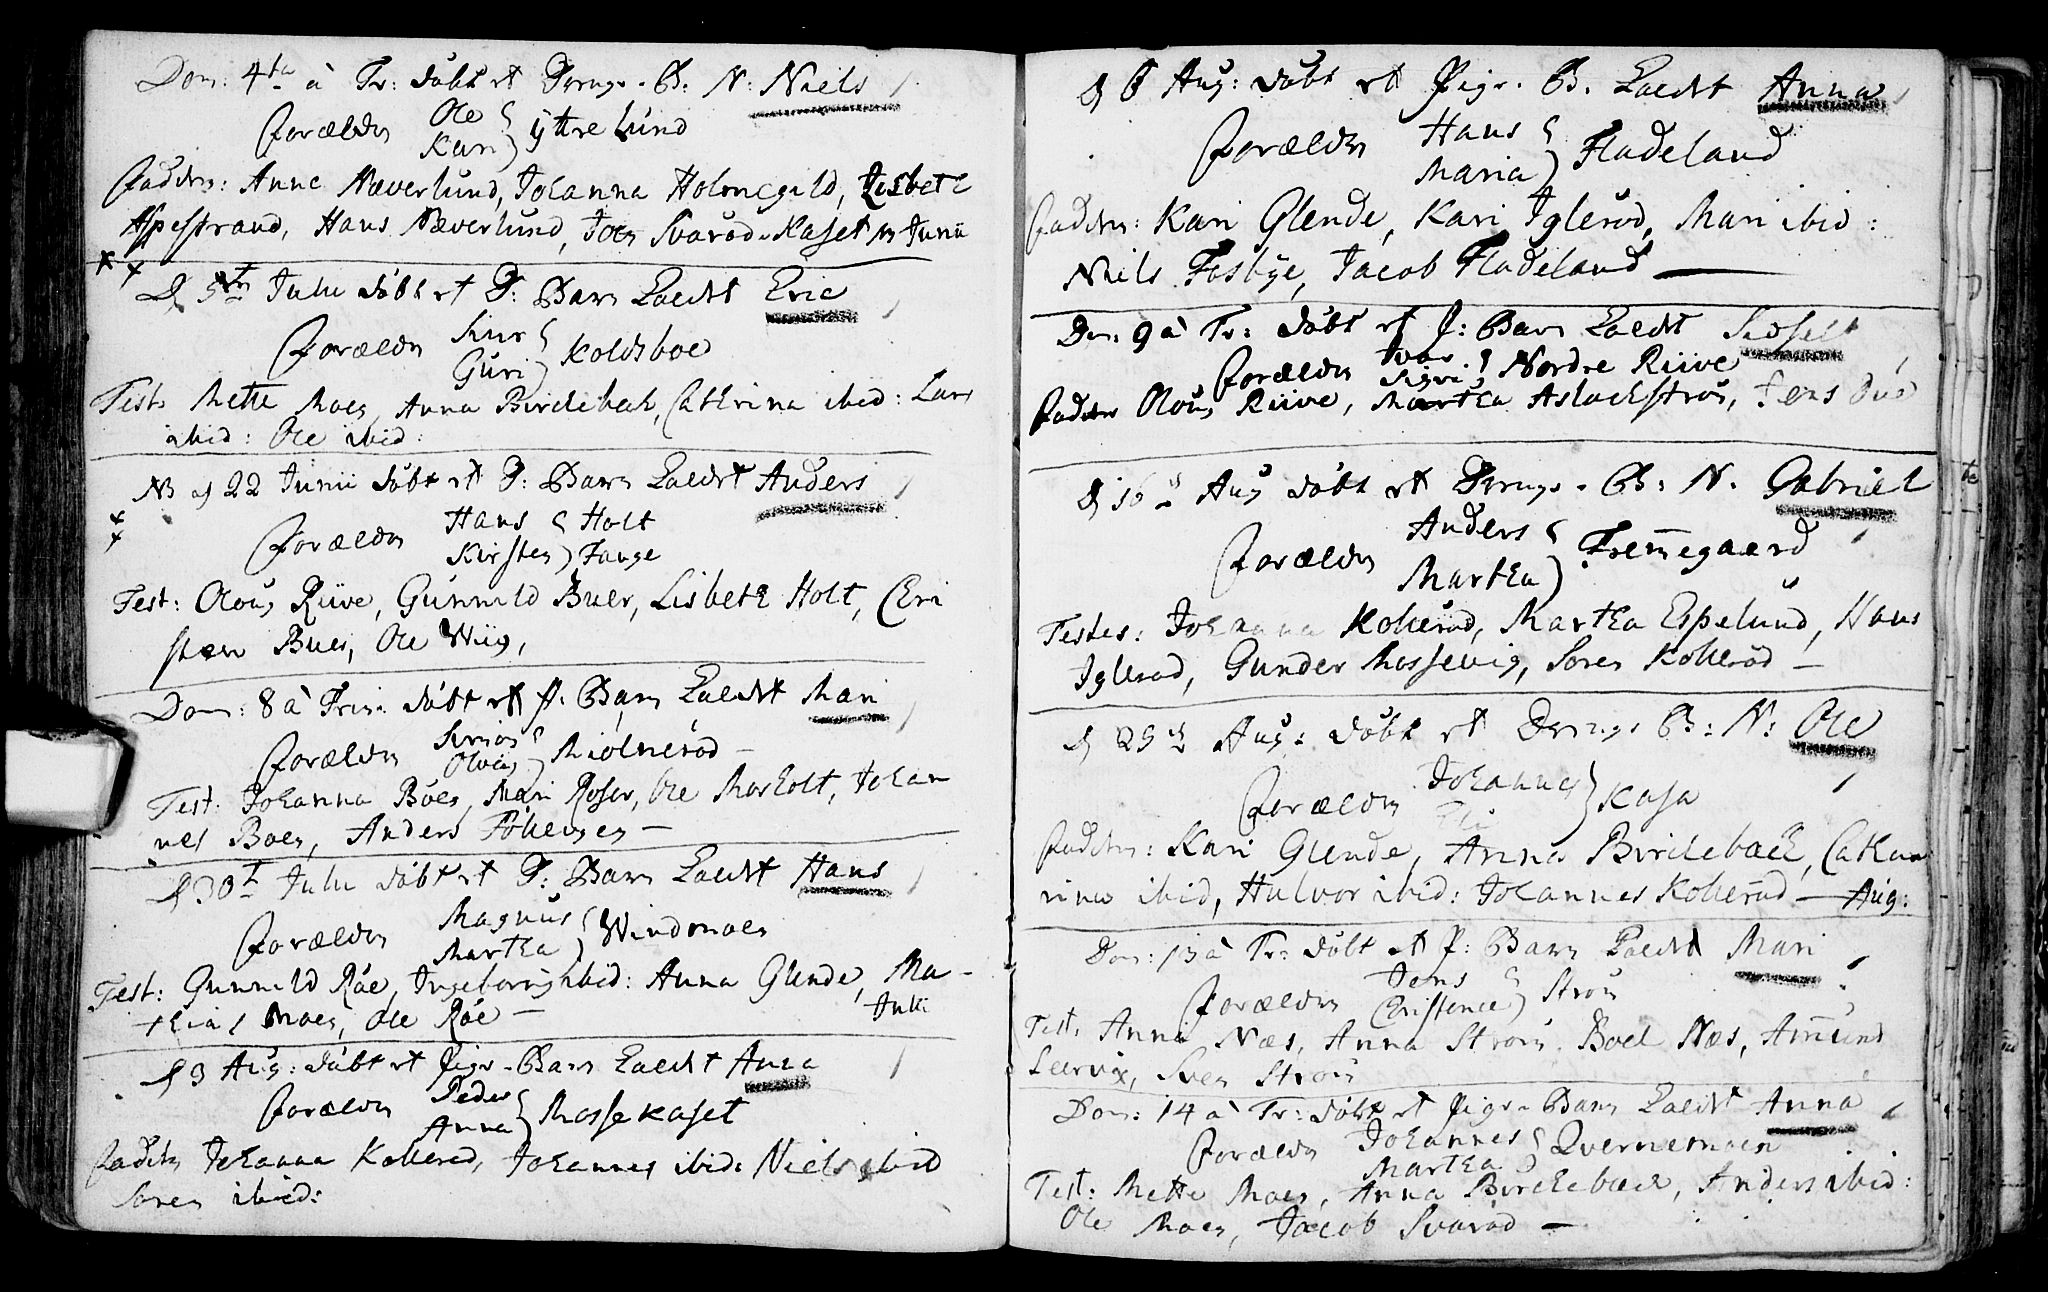 Dom: 4ta à Tr: döbt et Drenge-B: N: Niels
Forældre Ole Kari } ÿttre Lund
Faddere: Anne Næverlund, Johanna Holmegild, Lisbeth
Aspestrand, Hans Næverlund, Joen Svaröd-Kaset Junii
D 5te Julii döbt et P: Barn kaldt Eric
Forældre Siur Guri } Koldsboe
Test: Mette Moen, Anna Birckebæk, Cathrina ibid: Lars
ibid: Ole ibid:
NB d 22 Junii döbt et P: Barn kaldt Anders
Forældre Hans Kirsten } Holt Tange
Test: Olous Riive, Gunnild Buer, Lisbeth Holt, Chri
sten Buer, Ole Wiig,
Dom: 8 à Trin: döbt et P. Barn kaldt Mari
Forældre Olous } Miölneröd –
Test: Johanna Boer, Mari Roser, Ole Marholt, Johan
nes Boer, Anders –
D 30te Julii döbt et P: Barn kaldt Hans
Forældre Magnus Martha } Windmoen
Test: Gunnild Röe, Ingeborrig ibid: Anna Glende, Ma-
thias Moen, Ole Röe – Julii
D 3 Aug: döbt et Pige-Barn kaldt Anna
Forældre Peder Anna } Mossekaset
Faddere Johanna Kolleröd, Johannes ibid: Niels ibid
Soren ibid:
D 6 Aug: döbt et Pige-B. kaldt Anna
Forældre Hans Maria } Fladeland
Faddere: Kari Glende, Kari Igleröd, Mari ibid:
Niels Fosbÿe, Jacob Fladeland —
Dom: 9 à Tr: döbt et P: Barn kaldt Sidsel
Forældre Iver Sigri } Nordre Riive
Faddere Olous Riive, Martha Aslackströs, Jens
D 16de Aug döbt et Drenge-B: N. Gabriel
Forældre Anders Martha } Fremegaard
Testes: Johanna Kolleröd, Martha Espelund, Hans
Igleröd, Gunder Mossevig, Soren Kolleröd –
D 29de Aug: döbt et Drenge B: N: Ole
Forældre Johannes } Kasa
Faddere: Kari Glende, Anna Birckebæck, Catha
rina ibid, Halvor ibid: Johannes Kolleröd – Aug:
Dom: 13 à Tr: döbt et P: Barn kaldt Mari
Forældre Jens Christence } Strøm
Test: Anna Næs, Anna Strøm, Boel Næs, Amund
Leervig, Sven Strøm
Dom: 14 à Tr: döbt et Pige-Barn kaldt Anna
Forældre Johannes Martha } Qvernemoen
Test: Mette Moen, Anna Birckebæck, Anders ibid:
Ole Moen, Jacob Svaröd –